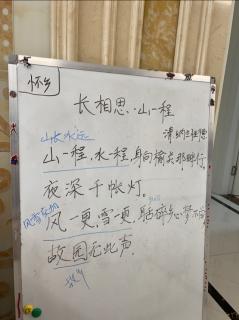 怀乡
长相思·山一程
清 纳兰性德
山长水远
山一程,水一程,身向榆关那畔行,
夜深千帐灯。
风雪交加
风一更,雪一更,聒碎乡心梦不
故园无此声.
故乡